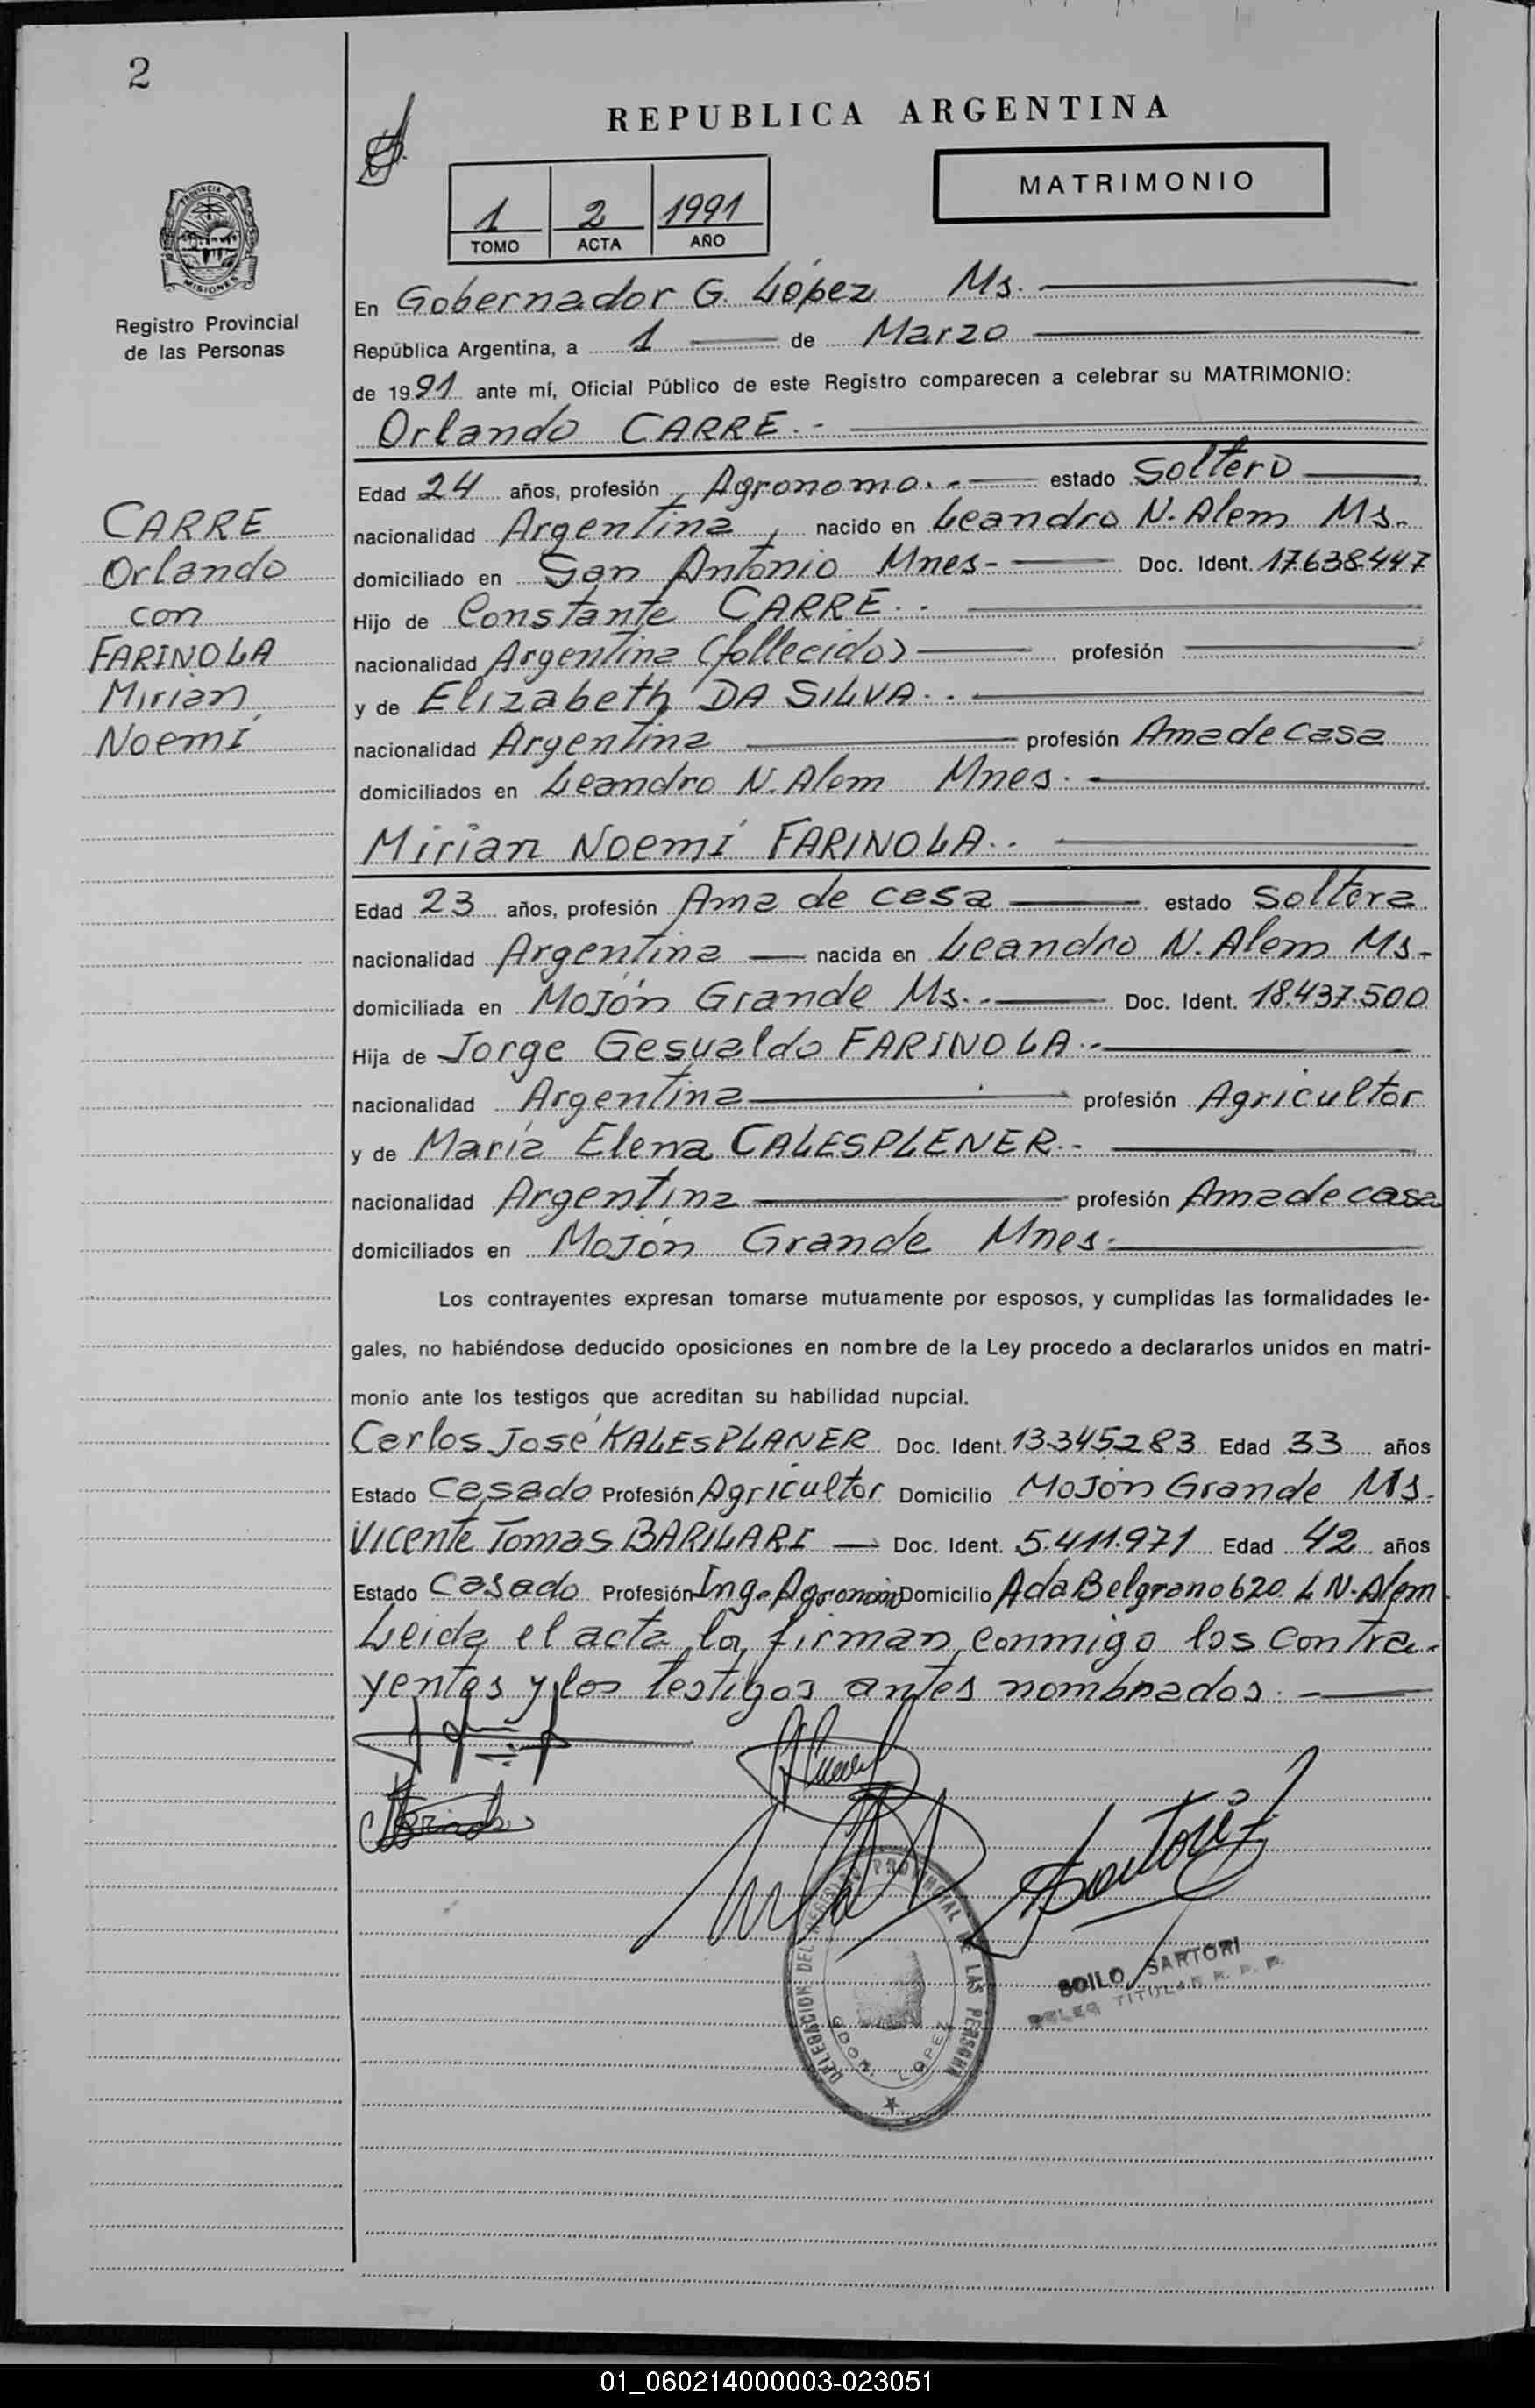 2
REPUBLICA ARGENTINA
MATRIMONIO
1 2 1991
TOMO ACTA AÑO
PROVINCIA DE
MISIONES
Registro Provincial
de las Personas
En Gobernador G. López Ms.
República Argentina, a 1 de Marzo
de 1991 ante mí, Oficial Público de este Registro comparecen a celebrar su MATRIMONIO:
Orlando CARRE.-
Edad 24 años, profesión Agronomo.- estado Soltero
CARRE
Orlando
con
FARINOLA
Mirian
Noemí
nacionalidad Argentina, nacido en Leandro N. Alem Ms.
domiciliado en San Antonio Mnes- Doc. Ident. 17.638.447
Hijo de Constante CARRE..
nacionalidad Argentina (fallecido) profesión
y de Elizabeth DA SILVA..
nacionalidad Argentina profesión Ama de casa
domiciliados en Leandro N. Alem Mnes.-
Mirian Noemí FARINOLA..
Edad 23 años, profesión Ama de cesa estado Soltera
nacionalidad Argentina nacida en Leandro N. Alem Ms-
domiciliada en Mojón Grande Ms.- Doc. Ident. 18.437.500
Hija de Jorge Gesualdo FARINOLA.-
nacionalidad Argentina profesión Agricultor
y de María Elena CALESPLENER.-
nacionalidad Argentina profesión Ama de casa
domiciliados en Mojón Grande Mnes.
Los contrayentes expresan tomarse mutuamente por esposos, y cumplidas las formalidades le-
gales, no habiéndose deducido oposiciones en nombre de la Ley procedo a declararlos unidos en matri-
monio ante los testigos que acreditan su habilidad nupcial.
Carlos José KALESPLANER Doc. Ident. 13345283 Edad 33 años
Estado Casado Profesión Agricultor Domicilio Mojón Grande Ms.
Vicente Tomas BARILARI Doc. Ident. 5.411.971 Edad 42 años
Estado Casado Profesión Ing. Agronom Domicilio Ada Belgrano 620 L N. Alem
Leida el acta la firman conmigo los contra-
yentes y los testigos antes nombrados.-
DELEGACION DEL REGISTRO PROVINCIAL DE LAS PERSONAS
GDOR. LOPEZ
SOILO SARTORI
DELEG TITULAR R. P. P.
01_060214000003-023051